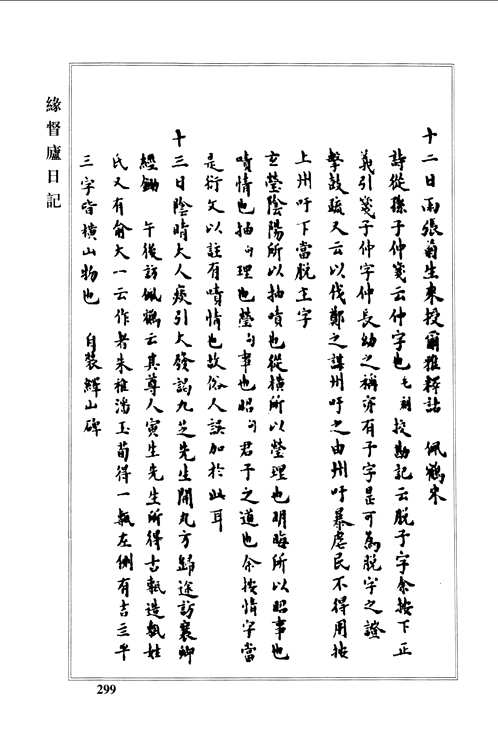 緣督廬日記
十二日雨張菊生來授爾雅釋詁 佩鶴來
詩從孫子仲箋云仲字也毛刻校勘記云脫子字余按下正
義引箋子仲字仲長幼之稱穿有子字是可為脫字之證
擊鼓疏又云以伐鄭之謀州吁之由州吁暴虐民不得用按
上州吁下當脫主字
玄瑩陰陽所以抽嘖也從橫所以瑩理也明晦所以昭事也
嘖情也抽 理也瑩 事也昭 君子之道也余按情字當
是衍文以註有嘖情也故俗人誤加於此耳
十三日陰晴大人痰引大發謁九芝先生開丸方歸途訪襄卿
經鋤 午後訪佩鶴云其尊人寅生先生所得古甎造甎姓
氏又有俞大一云作者朱稚 玉荀得一甎左側有吉三平
三字皆橫山物也 自裝輝山碑
299